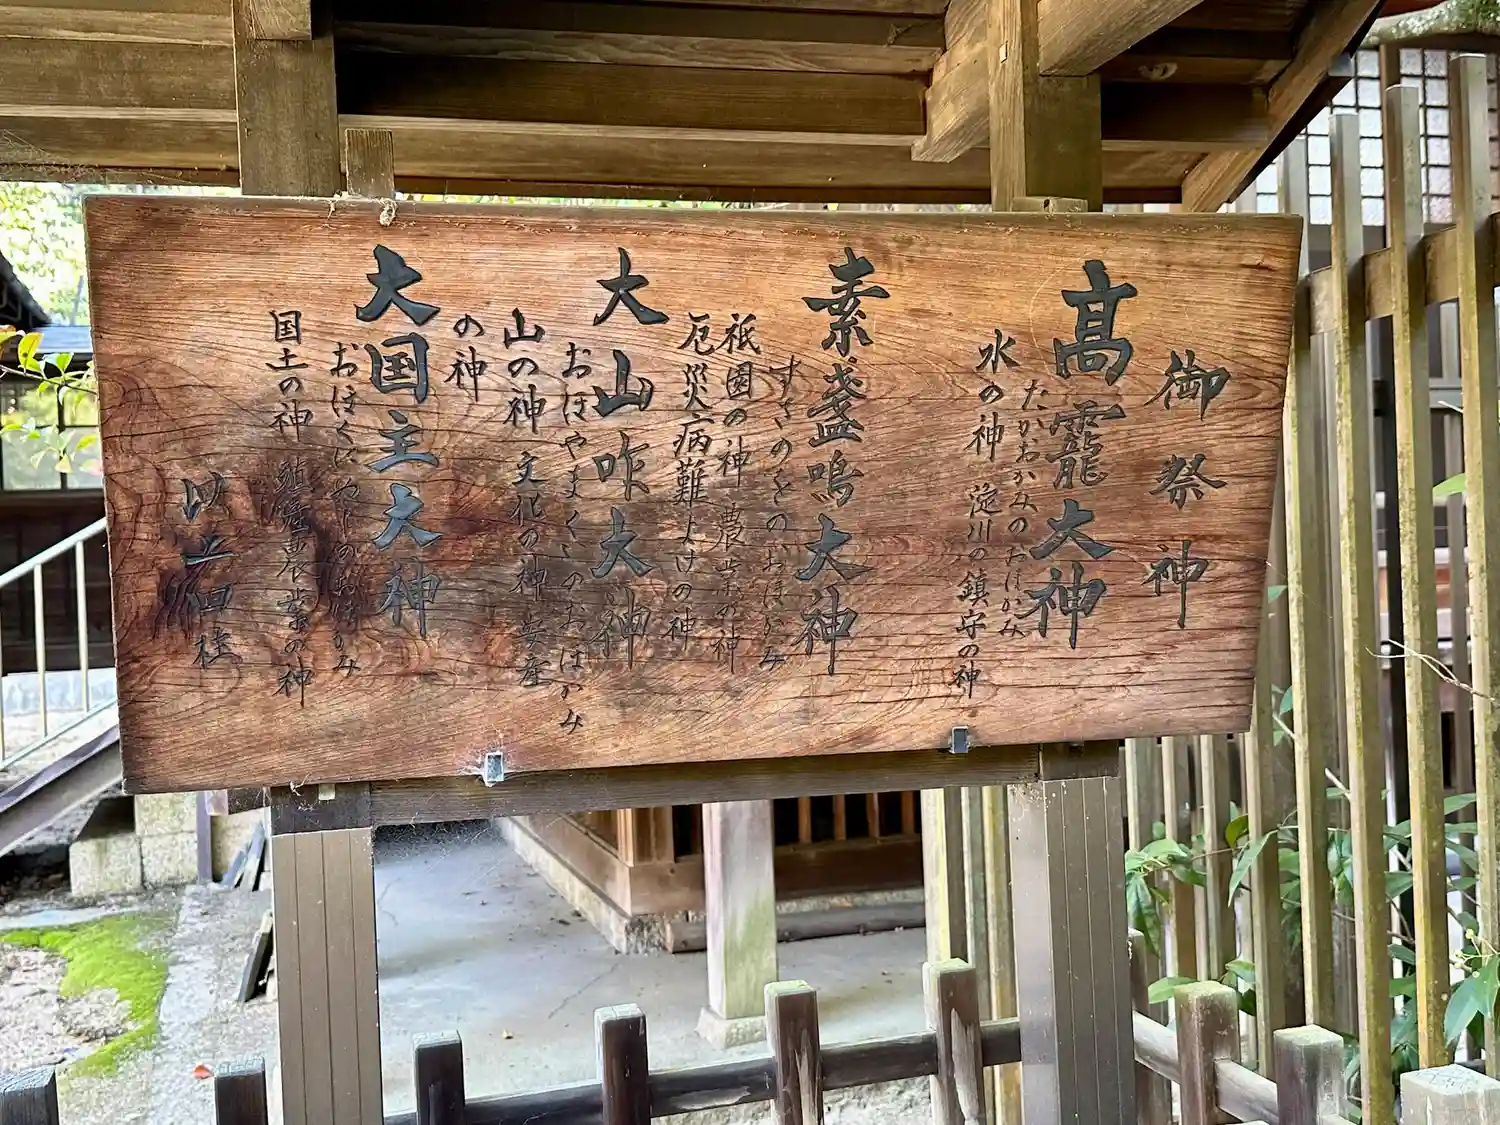 御祭神
高龗大神
たかおかみのおほかみ
水の神 淀川の鎮守の神
素盞鳴大神
すさのをのおほかみ
祇園の神 農業の神
厄災病難よけの神
大山咋大神
おほやまくいのおほかみ
山の神 文化の神 安産
の神
大国主大神
おほくにぬしのおほかみ
国土の神 農業の神
以上四柱